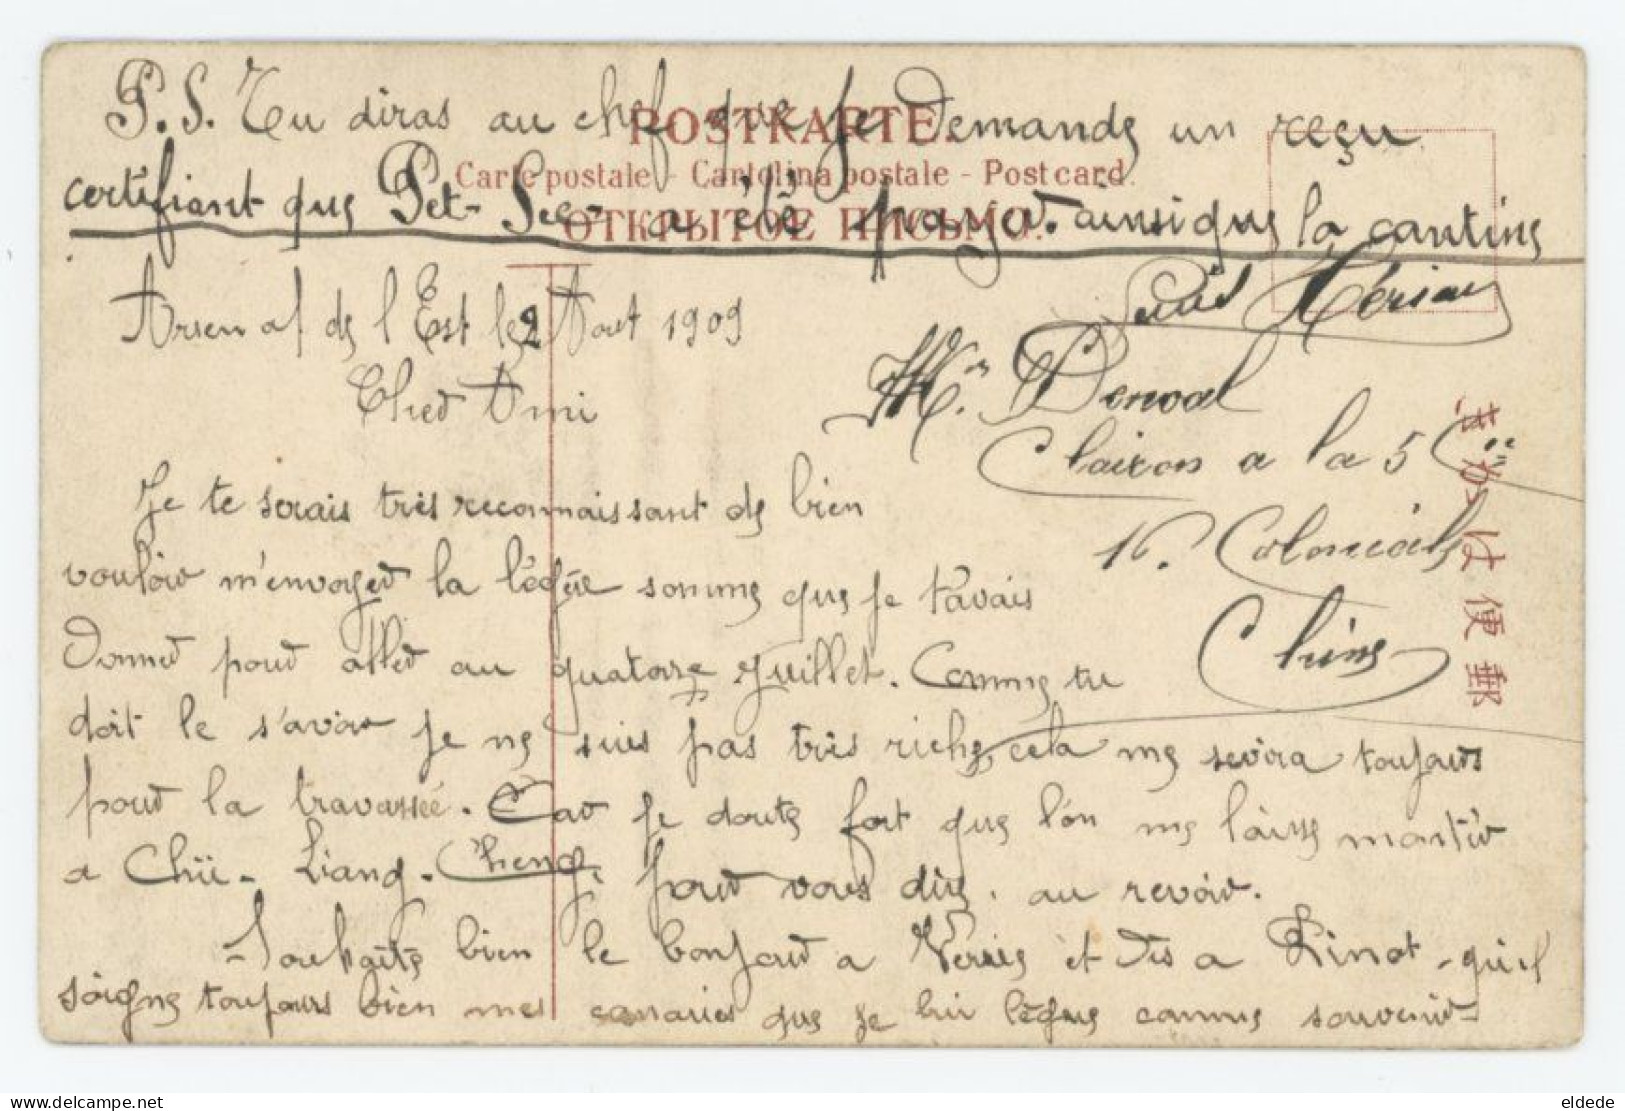 P.S. Tu diras au chef que je demande un reçu
certifiant que Pet-See- a été payer. ainsi que la cantine
POSTKARTE.
Carte postale - Cartolina postale - Postcard.
ОТКРЫТОЕ ПИСЬМО.
Arsenal de l'Est le 2 Aout 1909
Cher Ami
Je te serais très reconnaissant de bien
vouloir m'envoyer la légère somme que je t'avais
Donner pour aller au quatorze Juillet. Comme tu
doit le s'avoir je ne suis pas très riche, cela me servira toujours
pour la traversée. Car je doute fort que l'on me laisse partir
a Chü-Liang-Cheng, pour vous dire au revoir.
Souhaite bien le bonjour a et dis a Linot, qu'il
soigne toujours bien mes canaries que je lui lègue comme souvenir
Mr. Derval
Clairon a la 5 Cie
16. Coloniale
Chine
郵便はがき
eldede